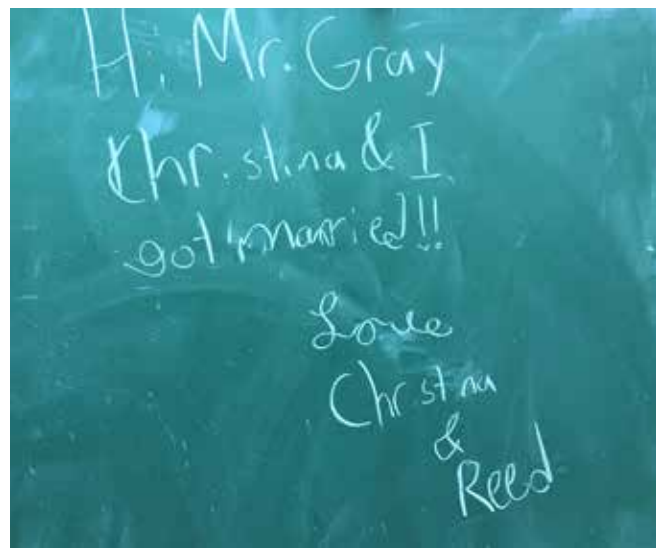 Hi Mr. Gray
Christina & I
got married!!
Love
Christina
&
Reed